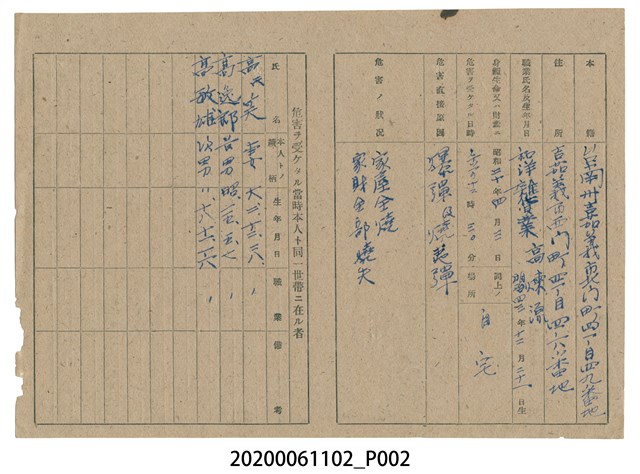 本籍 台南州嘉義市北門町四丁目四九番地
住所 嘉義市西門町四丁目四六番地
職業氏名及生年月日 和洋雜貨業 高煉流 明治四三年十二月二十一日生
身體生命又ハ財產ニ危害ヲ受ケタル日時 昭和二十年四月三日 分 同上ノ場所 自宅
危害直接原因 爆彈及燒夷彈
危害ノ狀況 家屋全燒
家財全部燒失
危害ヲ受ケタル當時本人ト同一世帶ニ在ル者
氏名 本人トノ續柄 生年月日 職業 備考
高氏 妻 大二、一二、二八、
高逸郎 長男 昭
高敏雄 次男
20200061102_P002